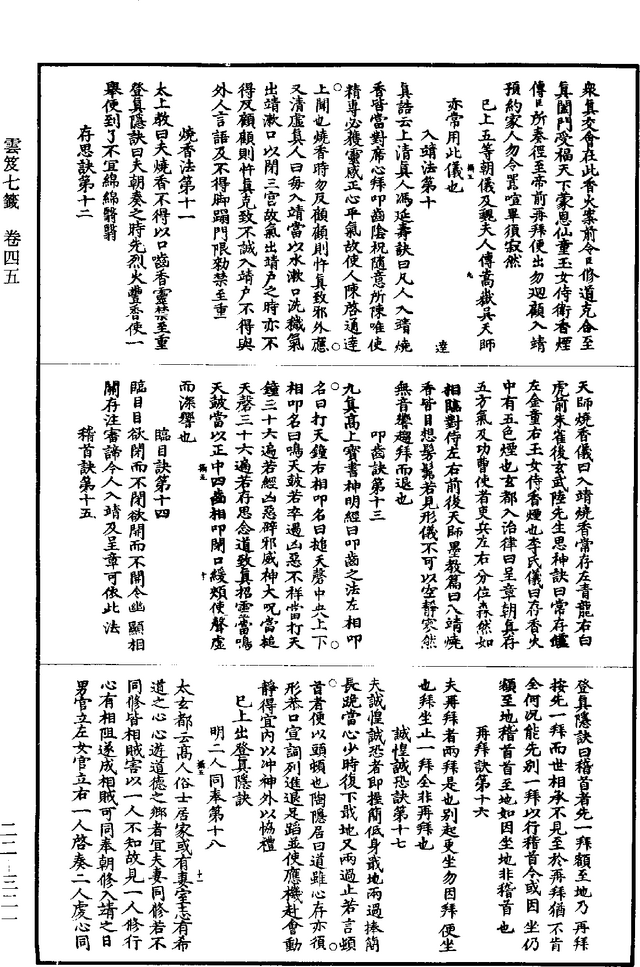 雲笈七籤　卷四五
眾真交會在此香火案前令臣修道克合至
真闔門受福天下蒙恩仙童玉女侍衛香煙
傳臣所奏徑至帝前再拜便出勿迴顧入靖
預約家人勿令囂喧畢須寂然
已上五等朝儀及魏夫人傳嵩嶽吳天師
亦常用此儀也
入靖法第十
真誥云上清真人馮延壽訣曰凡人入靖燒
香皆當對席心拜叩齒陰祝隨意所陳唯使
精專必獲靈感正心平氣故使人陳啓通達
上聞也燒香時勿反顧顧則忤真致邪外應
又清虛真人曰每入靖當以水漱口洗穢氣
出靖漱口以閉三宮故氣出靖戶之時亦不
得反顧顧則忤真克致不誠入靖戶不得與
外人言語及不得脚蹋門限勑禁至重
燒香法第十一
太上敕曰夫燒香不得以口嚙香靈禁至重
登真隱訣曰夫朝奏之時先烈火豐香使一
舉便到了不宜綿綿翳翳
存思訣第十二
天師燒香儀曰入靖燒香常存左青龍右白
虎前朱雀後玄武陸先生思神訣曰常存爐
左金童右玉女侍香煙也李氏儀曰存香火
中有五色煙也玄都入治律曰呈章朝真存
五方氣及功曹使者吏兵左右分位森然如
相臨對侍左右前後天師墨教篇曰入靖燒
香皆目想髣髴若見形儀不可以空靜寥然
無音響趨拜而退也
叩齒訣第十三
九真高上寶書神明經曰叩齒之法左相叩
名曰打天鐘右相叩名曰搥天磬中央上下
相叩名曰鳴天鼓若卒遇凶惡不祥當打天
鐘三十六遍若經凶惡辟邪威神大呪當搥
天磬三十六遍若存思念道致真招靈當鳴
天鼓當以正中四齒相叩閉口緩頰使聲虛
而深響也
臨目訣第十四
臨目目欲閉而不閉欲開而不開令幽顯相
關存注審諦今人入靖及呈章可依此法
稽首訣第十五
登真隱訣曰稽首者先一拜額至地乃再拜
按先一拜而世相承不見至於再拜猶不肯
全何況能先別一拜以行稽首令或因坐仍
額至地稽首首至地如因坐地非稽首也
再拜訣第十六
夫再拜者兩拜是也別起更坐勿因拜便坐
也拜坐止一拜全非再拜也
誠惶誠恐訣第十七
夫誠惶誠恐者即擁簡低身戢地兩過捧簡
長跪當心少時復下戢地又兩過止若言頓
首者便以頭頓也陶隱居曰道雖心存亦須
形恭口宣詞列進退足蹈並使應機赴會動
靜得宜內以冲神外以恊禮
已上出登真隱訣
明二人同奉第十八
太玄都云高人俗士居家或有妻室志有希
道之心心遊道德之鄉者宜夫妻同修若不
同修皆相賊害以一人不知故見一人修行
心有相阻遂成相賊可同奉朝修入靖之日
男官立左女官立右一人啓奏二人處心同
二二—三二一